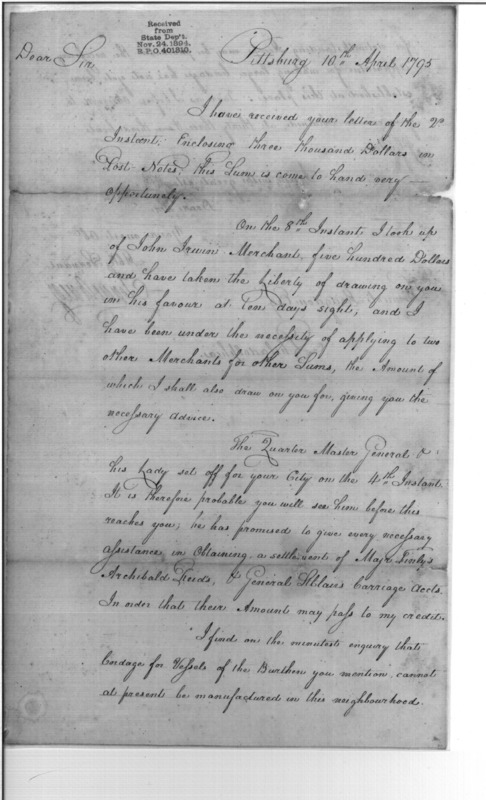 Received
from
State Dep't.
Nov. 24, 1894.
R.P.O. 401310.
Dear Sir
Pittsburg 10th April 1795
I have received your letter of the 2d
Instant, Enclosing three thousand Dollars in
Post Notes, this Sum is come to hand very
opportunely.
On the 8th Instant I took up
of John Irwin Merchant, five hundred Dollars
and have taken the Liberty of drawing on you
in his favour at Ten days sight, and I
have been under the necessity of applying to two
other Merchants for other Sums, the Amount of
which I shall also draw on you for, giving you the
necessary advice.
The Quarter Master General &
his Lady set off for your City on the 4th Instant
It is therefore probable you will see him before this
reaches you; he has promised to give every necessary
assistance in Obtaining a settlement of Majr.
Archibald &
General Carriage Accts.
In order that their Amount may pass to my credit.
I find on the minutest enquiry that
Cordage for Vessels of the Burthen you mention, cannot
at present be manufactured in this neighbourhood.